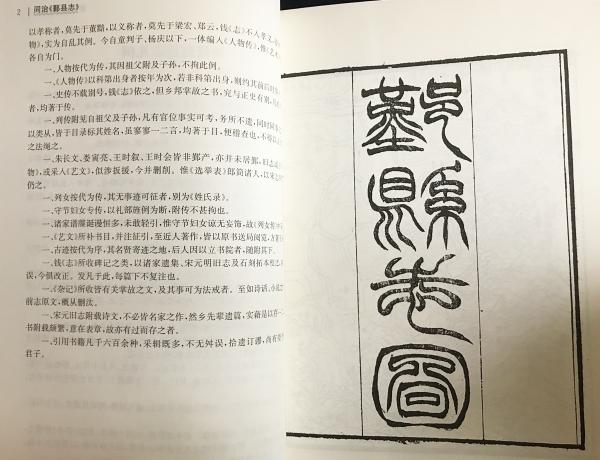 2 | 同治《鄞县志》
以孝称者,莫先于董黯,以义称者,莫先于梁宏、郑云,钱《志》不入孝义
物》,实为自乱其例。今自童判子、杨庆以下,一体编入《人物传》,惟《艺术》
各自为门。
一、人物按代为传,其因祖父附及子孙,不拘此例。
一、《人物传》以科第出身者按年为次,若非科第出身,则约其前后时
一、史传不载别号,钱《志》依之,但乡邦掌故之书,宛与正史有别,凡
者,均著于传。
一、列传附见自祖父及子孙,凡有官位事实可考,务所不遗,同时同事
以类从,皆于目录标其姓名,虽寥寥一二言,均著于目,便稽查也,不得以
之法绳之。
一、朱长文、娄寅亮、王时叙、王时会皆非鄞产,亦并未居鄞,旧志或
物》,或采入《艺文》,似涉扳援,今并删削。惟《选举表》郎简诸人,以宋
仍之。
一、列女按代为传,其无事迹可征者,别为《姓氏录》。
一、守节妇女专传,以礼部旌例为断,附传不甚拘也。
一、诸家谱牒诞漫恒多,未敢轻引,惟守节妇女谅无妄饰,故《列女传》
一、《艺文》所补书目,并注征引,至近人著作,皆以原书送局阅览,方著
一、古迹按代为序,其名贤寄迹之地,后人因以立书院者,随附其下。
一、钱《志》所收碑记之类,以诸家遗集、宋元明旧志及石刻拓本校
误,今俱改正。发凡于此,每篇下不复注也。
一、《杂记》所收皆有关掌故之文,及其事可为法戒者。至如诗话、小说
前志原文,概从删汰。
一、宋元旧志附载诗文,不必皆名家之作,然乡先辈遗篇,实藉是以存
书附载颇繁,意在表章,故亦有过而存之者。
一、引用书籍凡千六百余种,采辑既多,不无舛误,拾遗订谬,尚有
君子。
鄞縣志圖